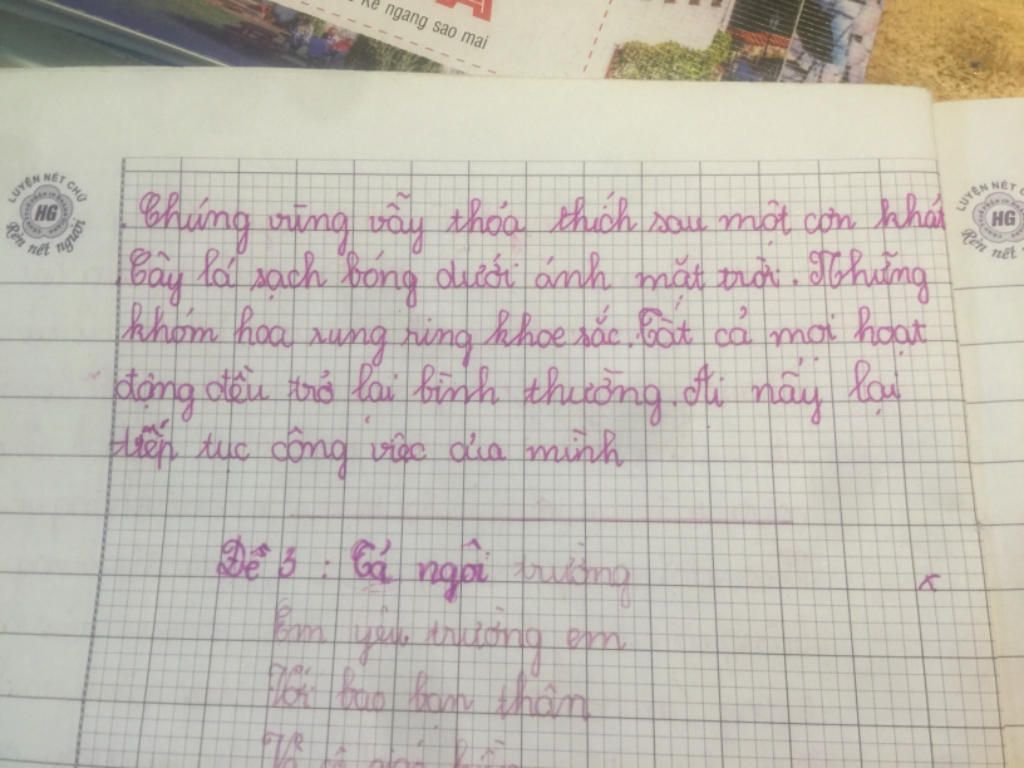 Kẻ ngang sao mai
LUYỆN NÉT CHỮ
HG
Rèn nết người
LUYỆN NÉT
HG
Rèn nết
Chúng vùng vẫy thỏa thích sau một cơn khát
Cây lá sạch bóng dưới ánh mặt trời. Những
khóm hoa rung ring khoe sắc. Tất cả mọi hoạt
động đều trở lại bình thường. Ai nấy lại
tiếp tục công việc của mình
Đề 3 : Tả ngôi trường
Em yêu trường em
Với bao bạn thân
Và cô giáo hiền